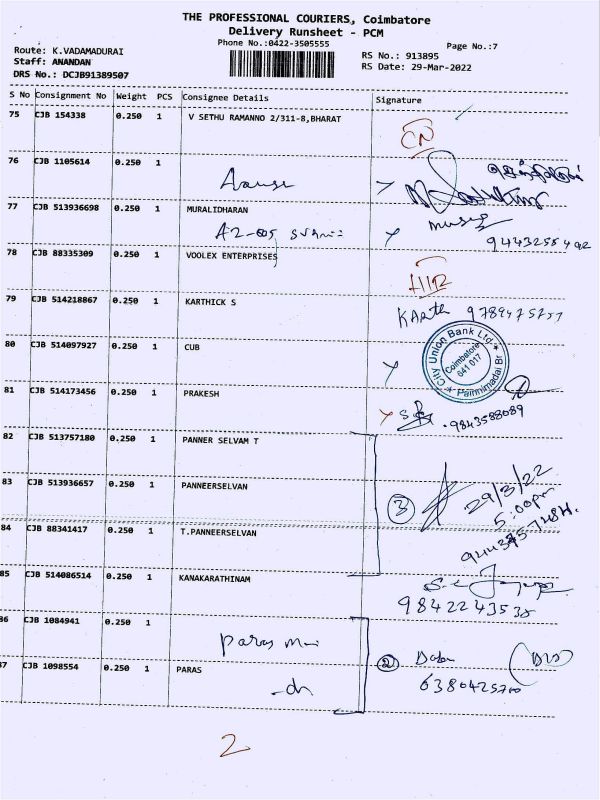 THE PROFESSIONAL COURIERS, Coimbatore
Delivery Runsheet - PCM
Phone No.:0422-3505555
Page No.:7
Route: K.VADAMADURAI
Staff: ANANDAN
DRS No.: DCJB91389507
RS No.: 913895
RS Date: 29-Mar-2022
S No Consignment No Weight PCS Consignee Details Signature
75 CJB 154338 0.250 1 V SETHU RAMANNO 2/311-8,BHARAT
76 CJB 1105614 0.250 1
77 CJB 513936698 0.250 1 MURALIDHARAN
A2-005,
78 CJB 88335309 0.250 1 VOOLEX ENTERPRISES
79 CJB 514218867 0.250 1 KARTHICK S
80 CJB 514097927 0.250 1 CUB
City Union Bank Ltd.
Coimbatore
641 017
Pannimadai Br
81 CJB 514173456 0.250 1 PRAKESH
9843588089
82 CJB 513757180 0.250 1 PANNER SELVAM T
83 CJB 513936657 0.250 1 PANNEERSELVAN
3
29/3/22
5:00pm
84 CJB 88341417 0.250 1 T.PANNEERSELVAN
85 CJB 514086514 0.250 1 KANAKARATHINAM
86 CJB 1084941 0.250 1
Paras
87 CJB 1098554 0.250 1 PARAS
2
2